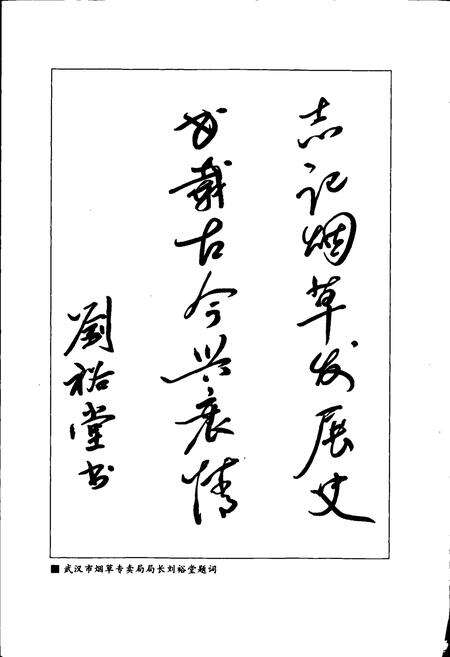 志记烟草发展史
书载古今兴衰情
劉裕堂书
■ 武汉市烟草专卖局局长刘裕堂题词